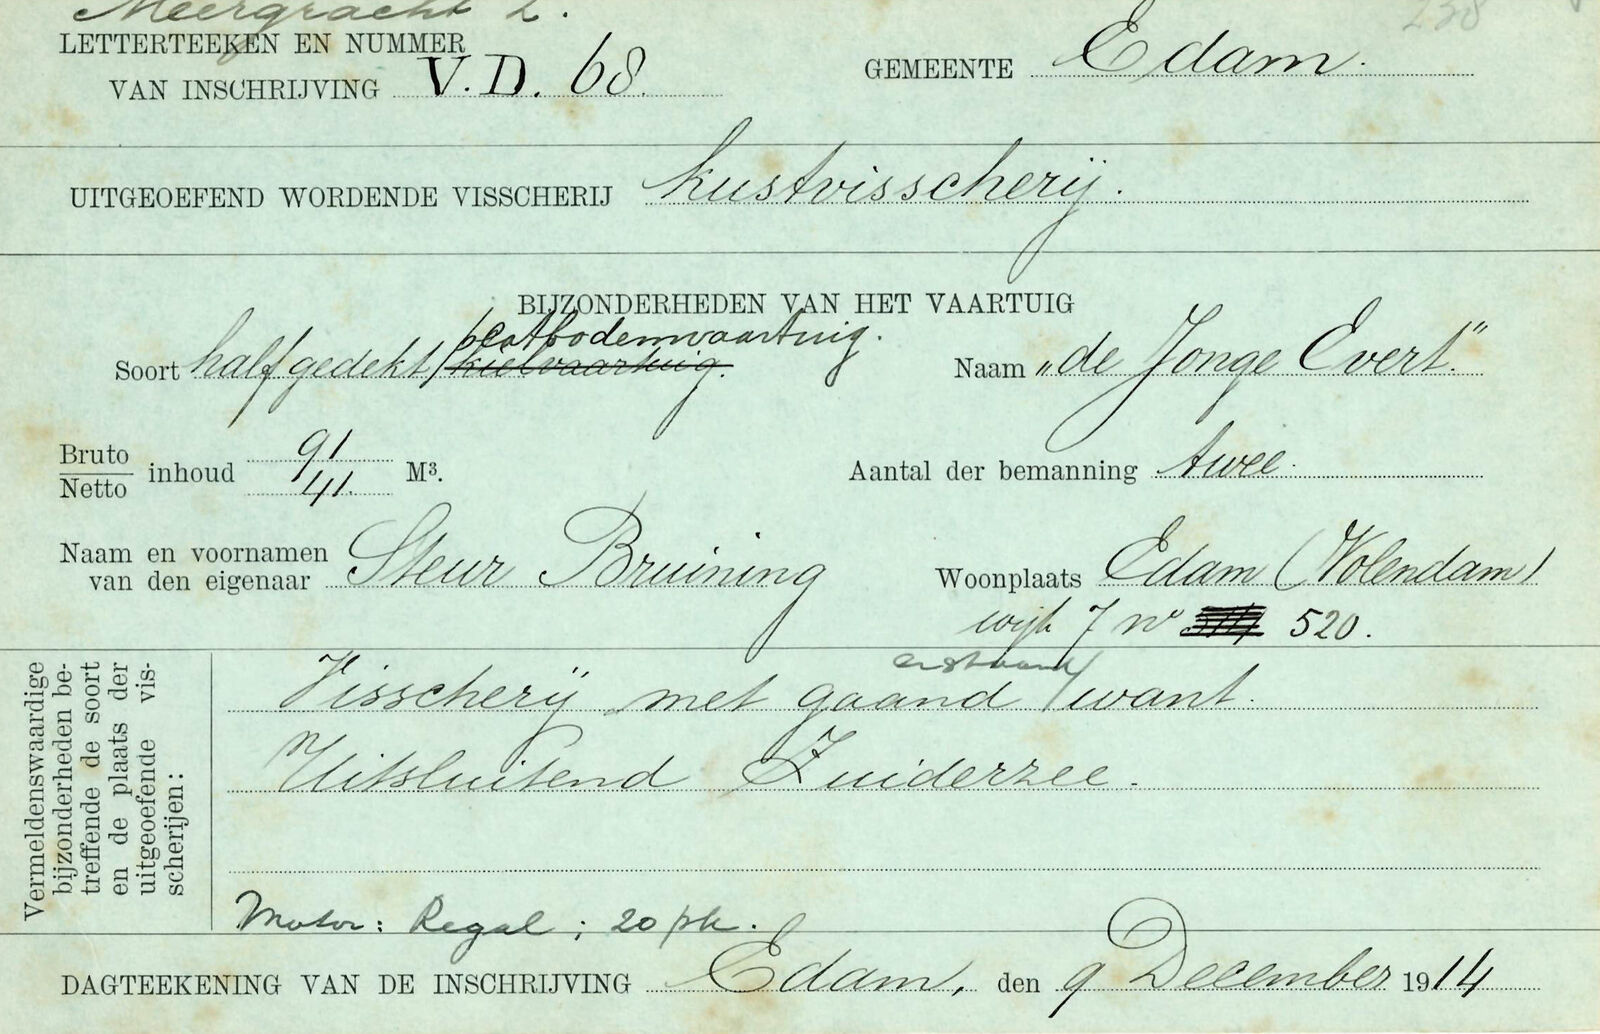 Meergracht 2.
238
LETTERTEEKEN EN NUMMER
VAN INSCHRIJVING V.D. 68.
GEMEENTE Edam.
UITGEOEFEND WORDENDE VISSCHERIJ kustvisscherij.
BIJZONDERHEDEN VAN HET VAARTUIG
platbodemvaartuig.
Soort halfgedekt kielvaartuig. Naam „de Jonge Evert."
Bruto 91
Netto inhoud 41. M³. Aantal der bemanning twee.
Naam en voornamen
van den eigenaar Steur Bruining Woonplaats Edam (Volendam)
wijk 7 no 520.
Vermeldenswaardige
bijzonderheden be-
treffende de soort
en de plaats der
uitgeoefende vis-
scherijen:
en staand
Visscherij met gaand want.
Uitsluitend Zuiderzee.
Motor: Regal; 20 pk.
DAGTEEKENING VAN DE INSCHRIJVING Edam, den 9 December 1914